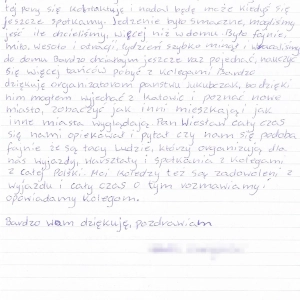 tej pory się kontaktuję i nadal będę może kiedyś się
jeszcze spotkamy. Jedzenie było smaczne, mogliśmy
jeść ile chcieliśmy, więcej niż w domu. Było fajnie
miło, wesoło i tydzień szybko minął i
do domu. Bardzo chciałbym jeszcze raz pojechać, nauczyć
się więcej tańców pobyć z kolegami. Bardzo
dziękuję organizatorom państwu Jakubczak, bo dzięki
nim mogłem wyjechać z Katowic i poznać nowe
miasto, zobaczyć jak inni mieszkają i jak
inne miasta wyglądają. Pan Wiesław cały czas
się nami opiekował i pytał czy nam się podoba
fajnie że są tacy ludzie, którzy organizują dla
nas wyjazdy, warsztaty i spotkania z kolegami
z całej Polski. Moi koledzy też są zadowoleni z
wyjazdu i cały czas o tym rozmawiamy i
opowiadamy kolegom.
Bardzo wam dziękuję, pozdrawiam